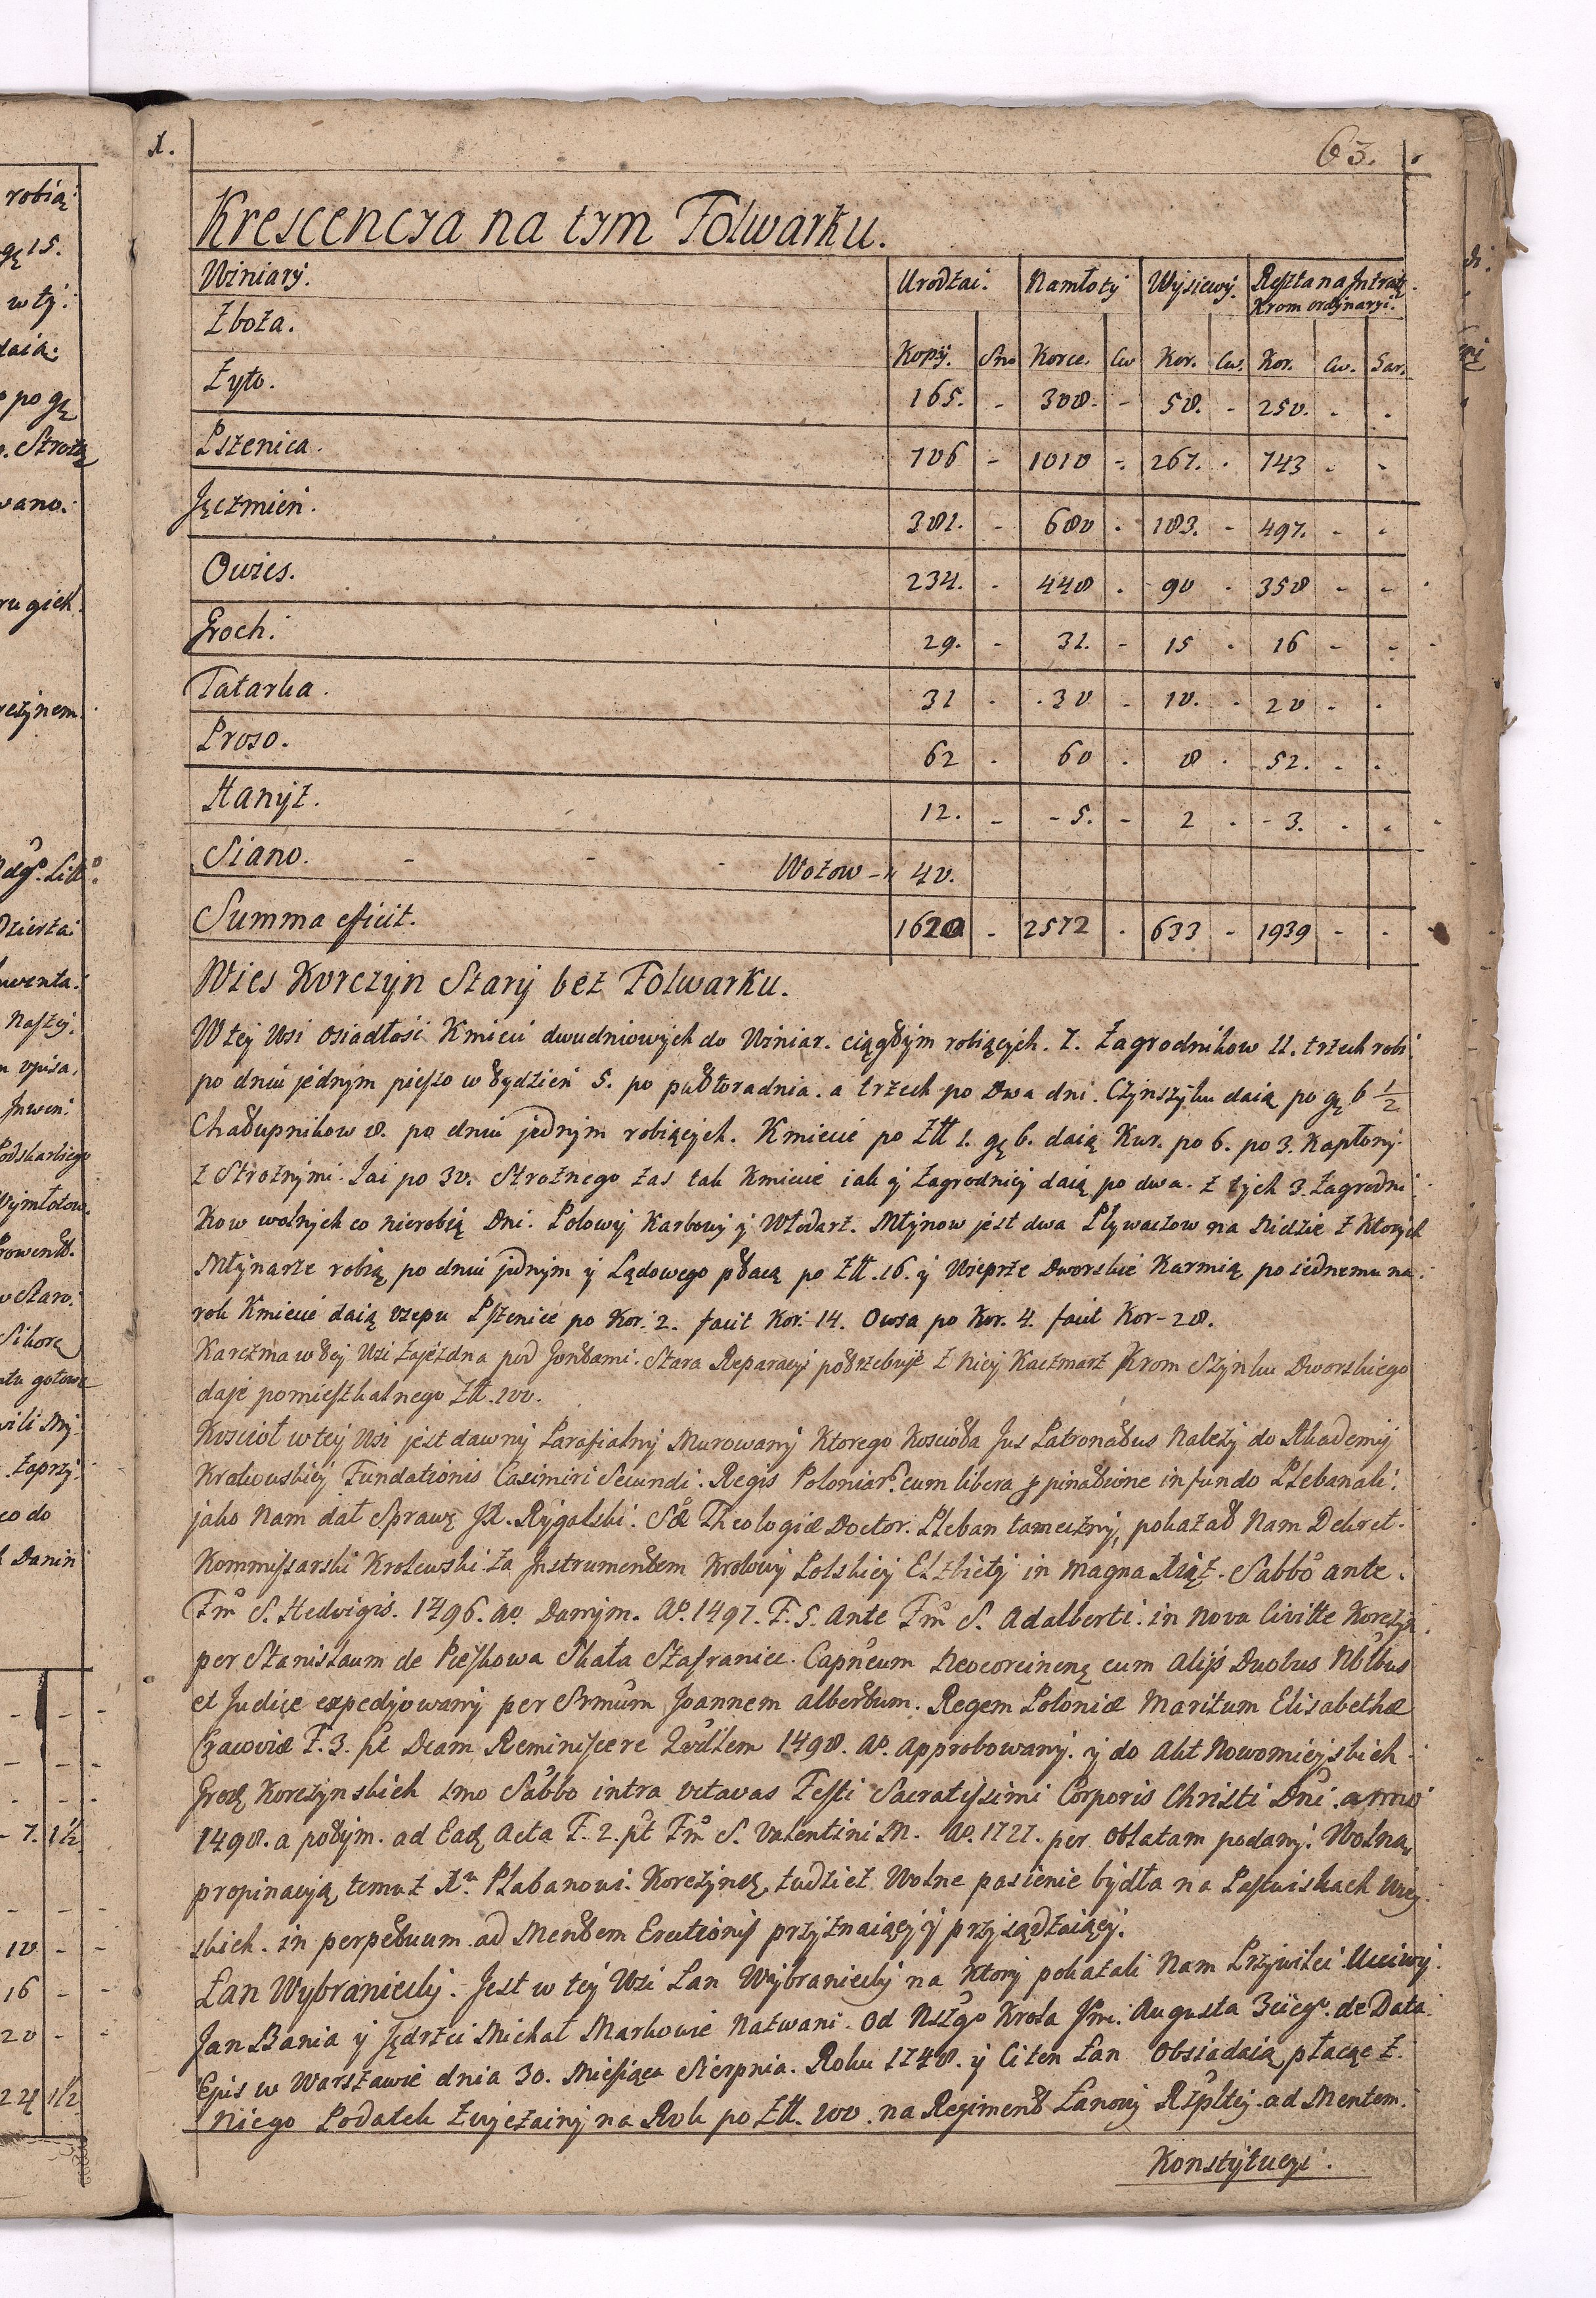 robią:
gę 15.
w tÿ:
daią:
po gę
Strożą
wano.
rugich.
reżÿnem.
Dzierżai
wenta:
Naszeÿ.
vpisa,
Inwen:
Podskarbiego
Wÿmłotow.
Starv:
Sikorę
gotowe
Zaprzÿ:
co do
Danin
- 7. 1½
10 -
16 -
20 -
24 1½
1.
63.
Krescencya na tym Folwarku.
Winiarÿ. Urodzai. Namłotÿ Wÿsiewÿ. Reszta na Intratę
Krom ordÿnarÿi.
Zboża.
Kopÿ. Sno Korce. Cw Kor. Cw. Kor. Cw. Gar.
Zyto. 165. - 308. - 58. - 250. - -
Pszenica. 706 - 1010 - 267. - 743 - -
Jęczmień. 381. - 680 - 183. - 497. - -
Owies. 234. - 448 - 90 - 358 - -
Groch. 29. - 31. - 15 - 16 - -
Tatarka. 31 - 30 - 10. - 20 - -
Proso. 62 - 60 - 8 - 52. - -
Hanÿż. 12. - 5. - 2 - 3. - -
Siano. - - - Wozow - 40.
Summa eficit. 1620 - 2572 - 633 - 1939 - -
Wies Korczÿn Starÿ bez Folwarku.
W teÿ Wsi osiadłosi Kmieci dwudniowÿch do Winiar. ciągłÿm robiącÿch. 7. Zagrodnikow 11. trzech robi
po dniu jednÿm pieszo w tÿdzień 5. po pułtoradnia. a trzech po Dwa dni. Czÿnszÿku daią po gę 6 ½
Chałupnikow 8. po dniu jednÿm robiącÿch. Kmiecie po Złt 1. gę 6. daią Kur. po 6. po 3. Kapłonÿ
z Stroznÿmi. Jai po 30. Stroznego zas tak Kmiecie iak ÿ Zagrodnicÿ daią po dwa. z tÿch 3. Zagrodni
kow wolnÿch co nierobią Dni. Polowÿ Karbowÿ ÿ Włodarz. Młÿnow jest dwa Płÿwaczow na Nidzie z Ktorÿch
Młÿnarze robią po dniu jednÿm ÿ Lądowego płacą po Złt. 16. ÿ Wieprze Dworskie Karmią po iednemu na
rok Kmiecie daią vsepu Pszenice po Kor. 2. facit Kor. 14. Owsa po Kor. 4. facit Kor - 28.
Karczma w teÿ Wsi Zajezdna pod Gontami. Stara Reparacÿi potrzebuje z nieÿ Kaczmarz Krom Szÿnku Dworskiego
daje pomieszkalnego Złt. 100.
Kosciół w teÿ Wsi jest dawnÿ Parafialnÿ Murowanÿ Ktorego Kosciola Jus Patronatus Należÿ do Akademÿ
Krakowskieÿ Fundationis Casimiri Secundi. Regis Poloniar. cum libera propinatione in fundo Plebanali.
jako Nam dał Sprawę JX. Rÿgalski. Sæ Theologiæ Doctor. Pleban tamecznÿ, pokazał Nam Dekret.
Kommissarski Krolewski za Instrumentem Krolowÿ Polskieÿ Elzbietÿ in magna Xiąz. Sabbo ante
Fm S. Hedvigis. 1496. Ao Danÿm. Ao. 1497. F. 5. Ante Fm S. Adalberti. in Nova Civitte Korczÿn
per Stanislaum de Pieskowa Skała Szafraniec. Capneum Neocorcinenę cum Alÿs Duobus Nblbus
et Judice expedjowanÿ per Srmum Joannem Albertum. Regem Poloniæ Maritum Elisabethæ
Cracoviæ F. 3. pt Dcam Reminiscere 1498. Ao. Approbowanÿ. ÿ do Akt Nowomieÿskich
Grodę Korczÿnskich 1mo Sabbo intra Octavas Festi Sacratissimi Corporis Christi Dni. anno
1498. a potÿm. ad Eadę Acta F. 2. pt Fm S. Valentini M. Ao. 1727. per Oblatam podanÿ. Wolną
propinacÿą temuż Xu. Plabanowi. Korczÿnsę, tudzież Wolne pasienie bÿdła na Pastwiskach Wieÿ
skich. in perpetuum ad Mentem Erectionis przÿznaiąceÿ ÿ przÿsądzaiąceÿ.
Łan Wÿbranieckÿ. Jest w teÿ Wsi Łan Wÿbranieckÿ na Ktorÿ pokazali Nam Przÿwileÿ Uciwÿ.
Jan Bania ÿ Jędrzeÿ Michał Markowie Nazwani. Od Nszgo Krola Jmci Augusta 3cieg. de Data
Ejus w Warszawie dnia 30. Miesiąca Sierpnia. Roku 1748. ÿ Ci ten Łan Obsiadaią płacąc z
Niego Podatek Zwÿczainÿ na Rok po Złt. 100. na Regiment Łanowÿ Rzpltey ad Mentem.
Konstÿtucÿi.